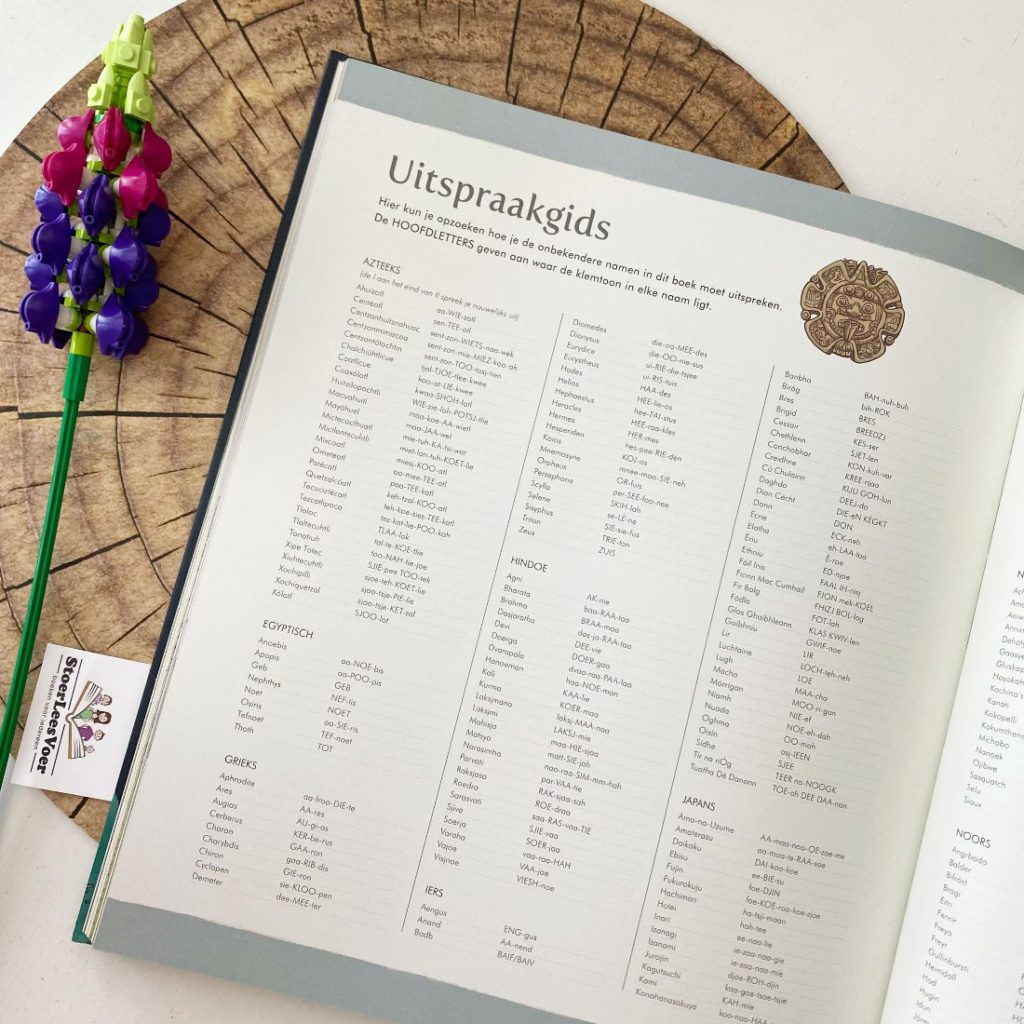 Uitspraakgids
Hier kun je opzoeken hoe je de onbekendere namen in dit boek moet uitspreken.
De HOOFDLETTERS geven aan waar de klemtoon in elke naam ligt.
AZTEEKS
(de l aan het eind van tl spreek je nauwelijks uit)
Ahuizotl aa-WIE-zotl
Centéotl sen-TEE-otl
Centzonhuitznahuac sent-zon-WIETS-naa-wek
Centzonmimizcoa sent-zon-mie-MIEZ-koo-ah
Centzontōtochtin sent-zon-TOO-tosj-tien
Chalchiuhtlicue tjal-TJOE-tlee-kwee
Coatlicue koo-at-LIE-kwee
Cuaxolotl kwaa-SHOH-lotl
Huitzilopochtli WIE-zie-loh-POTSJ-tlie
Macuahuitl maa-koe-AA-wietl
Mayáhuel maa-JAA-wel
Mictecacihuatl mie-tuh-KA-tsi-wat
Mictlantecuhtli miet-lan-tuh-KOET-lie
Mixcoatl miesj-KOO-atl
Ometeotl oo-mee-TEE-otl
Patécatl paa-TEE-katl
Quetzalcóatl keh-tzal-KOO-atl
Tecuciztécatl teh-koe-sies-TEE-katl
Tezcatlipoca tez-kat-lie-POO-kah
Tlaloc TLAA-lok
Tlaltecuhtli tal-te-KOE-tlie
Tonatiuh too-NAH-tie-joe
Xipe Totec SJIE-pee TOO-tek
Xiuhtecuhtli sjoe-teh-KOET-lie
Xochipilli sjoo-tsje-PIE-lie
Xochiquetzal sjoo-tsje-KET-zal
Xólotl SJOO-lot
EGYPTISCH
Anoebis aa-NOE-bis
Apopis aa-POO-pis
Geb GEB
Nephthys NEF-tis
Noet NOET
Osiris oo-SIE-ris
Tefnoet TEF-noet
Thoth TOT
GRIEKS
Aphrodite aa-froo-DIE-te
Ares AA-res
Augias AU-gi-as
Cerberus KER-be-rus
Charon GAA-ron
Charybdis gaa-RIB-dis
Chiron GIE-ron
Cyclopen sie-KLOO-pen
Demeter dee-MEE-ter
Diomedes die-oo-MEE-des
Dionysus die-OO-nie-sus
Eurydice ui-RIE-die-tsjee
Eurystheus ui-RIS-tuis
Hades HAA-des
Helios HEE-lie-os
Hephaestus hee-FAI-stus
Heracles HEE-raa-kles
Hermes HER-mes
Hesperiden hes-pee-RIE-den
Koios KOJ-os
Mnemosyne mnee-moo-SIE-neh
Orpheus OR-fuis
Persephone per-SEE-foo-nee
Scylla SKIH-lah
Selene se-LÉ-ne
Sisyphus SIE-sie-fus
Triton TRIE-ton
Zeus ZUIS
HINDOE
Agni AK-nie
Bharata baa-RAA-taa
Brahma BRAA-maa
Dasjaratha das-ja-RAA-taa
Devi DEE-vie
Doerga DOER-gaa
Dvarapala dvaa-raa-PAA-laa
Hanoeman haa-NOE-man
Kali KAA-lie
Kurma KOER-maa
Laksjmana laksj-MAA-naa
Laksjmi LAKSJ-mie
Mahisja maa-HIE-sjaa
Matsya matt-SIE-jah
Narasimha naa-raa-SIM-mm-hah
Parvati par-VAA-tie
Raksjasa RAK-sjaa-sah
Roedra ROE-draa
Sarasvati saa-RAS-vaa-TIE
Sjiva SJIE-vaa
Soerja SOER-jaa
Varaha vaa-raa-HAH
Vajoe VAA-joe
Visjnoe VIESH-noe
IERS
Aengus ENG-gus
Anand AA-nend
Badb BAIF/BAIV
Banbha BAH-nuh-buh
Biróg bih-ROK
Bres BRES
Brigid BREEDZJ
Cessair KES-ser
Chethlenn SJET-len
Conchobhar KON-kuh-var
Creidhne KREE-njaa
Cú Chulainn KULI GOH-lun
Daghda DEEJ-da
Dian Cécht DIE-eN KÈGKT
Donn DON
Ecne ECK-neh
Elatha eh-LAA-taa
Ériu É-roe
Ethniu ED-njoe
Fáil Inis FAAL ih-nisj
Fionn Mac Cumhail FJON mek-KOEL
Fir Bolg FHIZJ BOL-log
Fódla FOT-lah
Glas Ghaibhleann KLAS KWIV-len
Goibhniu GWIF-noe
Lir LIR
Luchtaine LOCH-teh-neh
Lugh LOE
Macha MAA-cha
Mórrigan MOO-ri-gan
Niamh NIE-ef
Nuada NOE-eh-dah
Oghma OO-mah
Oisín osj-IEEN
Sidhe SJEE
Tír na nÓg TEER na-NOOGK
Tuatha Dé Danann TOE-ah DEE DAA-nan
JAPANS
Ama-no-Uzume AA-maa-noo-OE-zoe-me
Amaterasu aa-maa-te-RAA-soe
Daikoku DAI-koo-koe
Ebisu ee-BIE-su
Fujin foe-DJIN
Fukurokuju foe-KOE-roo-koe-zjoe
Hachiman ha-tsji-maan
Hotei hoh-tee
Inari ee-naa-lie
Izanagi ie-zaa-naa-gie
Izanami ie-zaa-naa-mie
Jurojin djoe-ROH-djin
Kagutsuchi kaa-goe-tsoe-tsjie
Kami KAH-mie
Konohanasakuya
NOORS
Angrboda
Balder
Bifröst
Bragi
Eitri
Fenrir
Freya
Freyr
Gullinbursti
Heimdall
Hod
Hugin
Idun
Kanati
Kokopelli
Michabo
Nanaek
Ojibwe
Sasquatch
Selu
Sioux
StoerLeesVoer
boeken voor iedereen